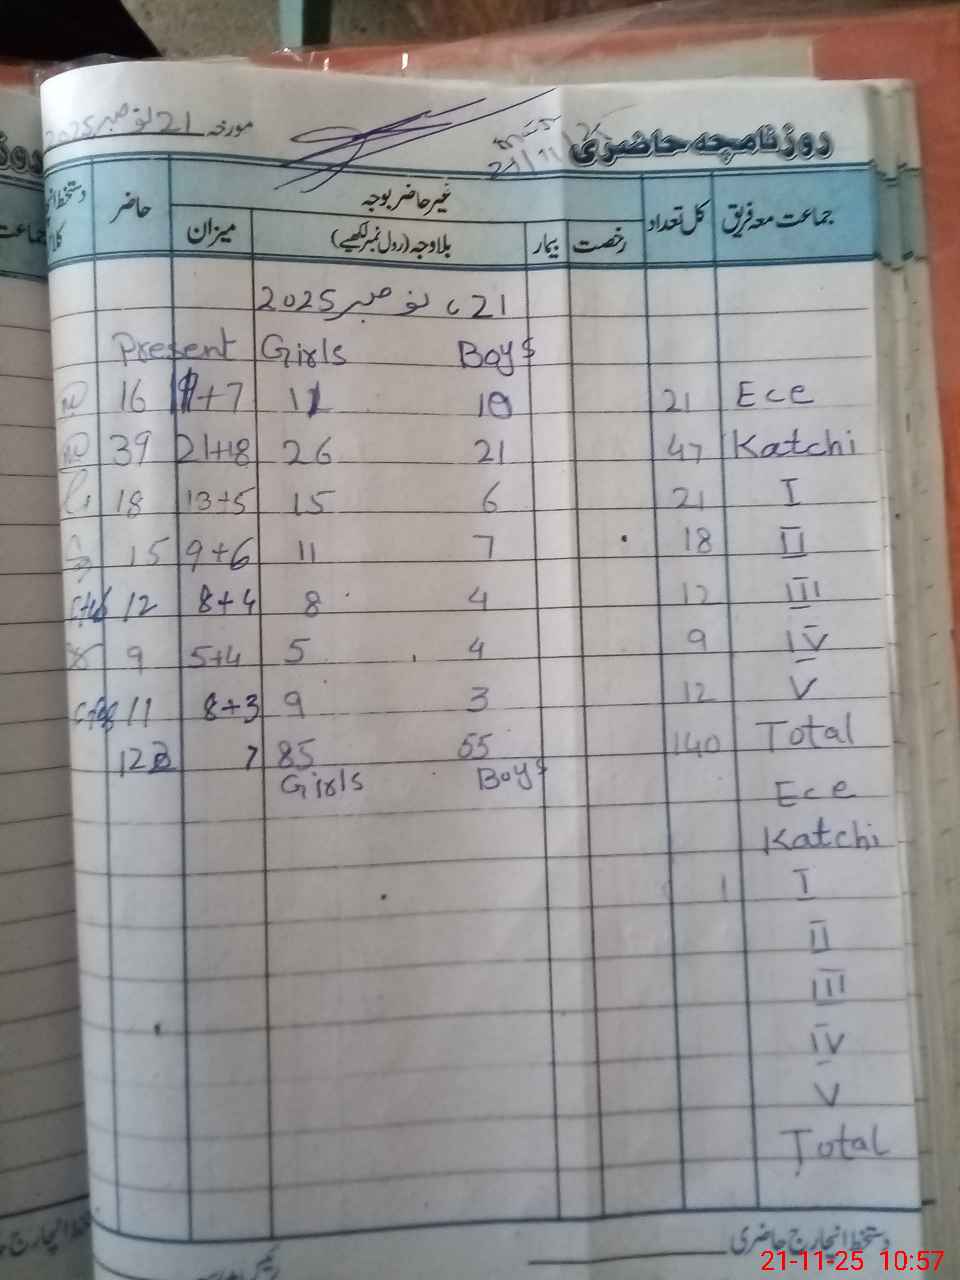 روزنامچہ حاضری
مورخہ 21 نومبر 2025
21/11/25
جماعت معہ فریق کل تعداد رخصت بیمار غیر حاضر بوجہ بلاوجہ (رول نمبر لکھیے) میزان حاضر
21، نومبر 2025
Present Girls Boys
16 +7 11 10 21 Ece
39 21+18 26 21 47 Katchi
18 13+5 15 6 21 I
15 9+6 11 7 18 II
12 8+4 8 4 12 III
9 5+4 5 4 9 IV
11 8+3 9 3 12 V
85 55 140 Total
Girls Boys
Ece
Katchi
I
II
III
IV
V
Total
دستخط انچارج حاضری
21-11-25 10:57